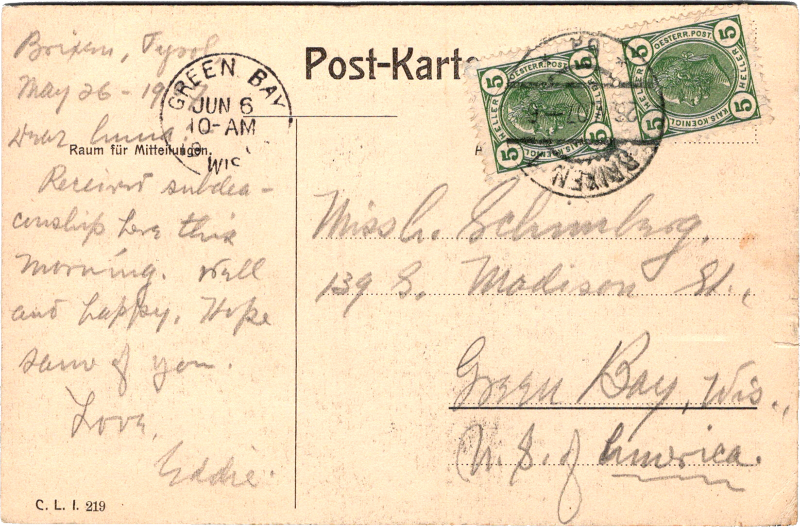 Brixen, Tyrol
May 26 - 1907
Dear Anna:
Raum für Mitteilungen.
Received subdea-
conship here this
morning. Well
and happy. Hope
same of you.
Love,
Eddie.
C. L. I. 219
GREEN BAY
JUN 6
10-AM
WIS
Post-Karte
5 5
OESTERR. POST.
HELLER HELLER
KAIS. KOENIGL.
5 5
5 5
OESTERR. POST.
HELLER HELLER
KAIS. KOENIGL.
5 5
BRIXEN
Miss A. Schumberg,
139 S. Madison St.,
Green Bay, Wis.,
U. S. of America.